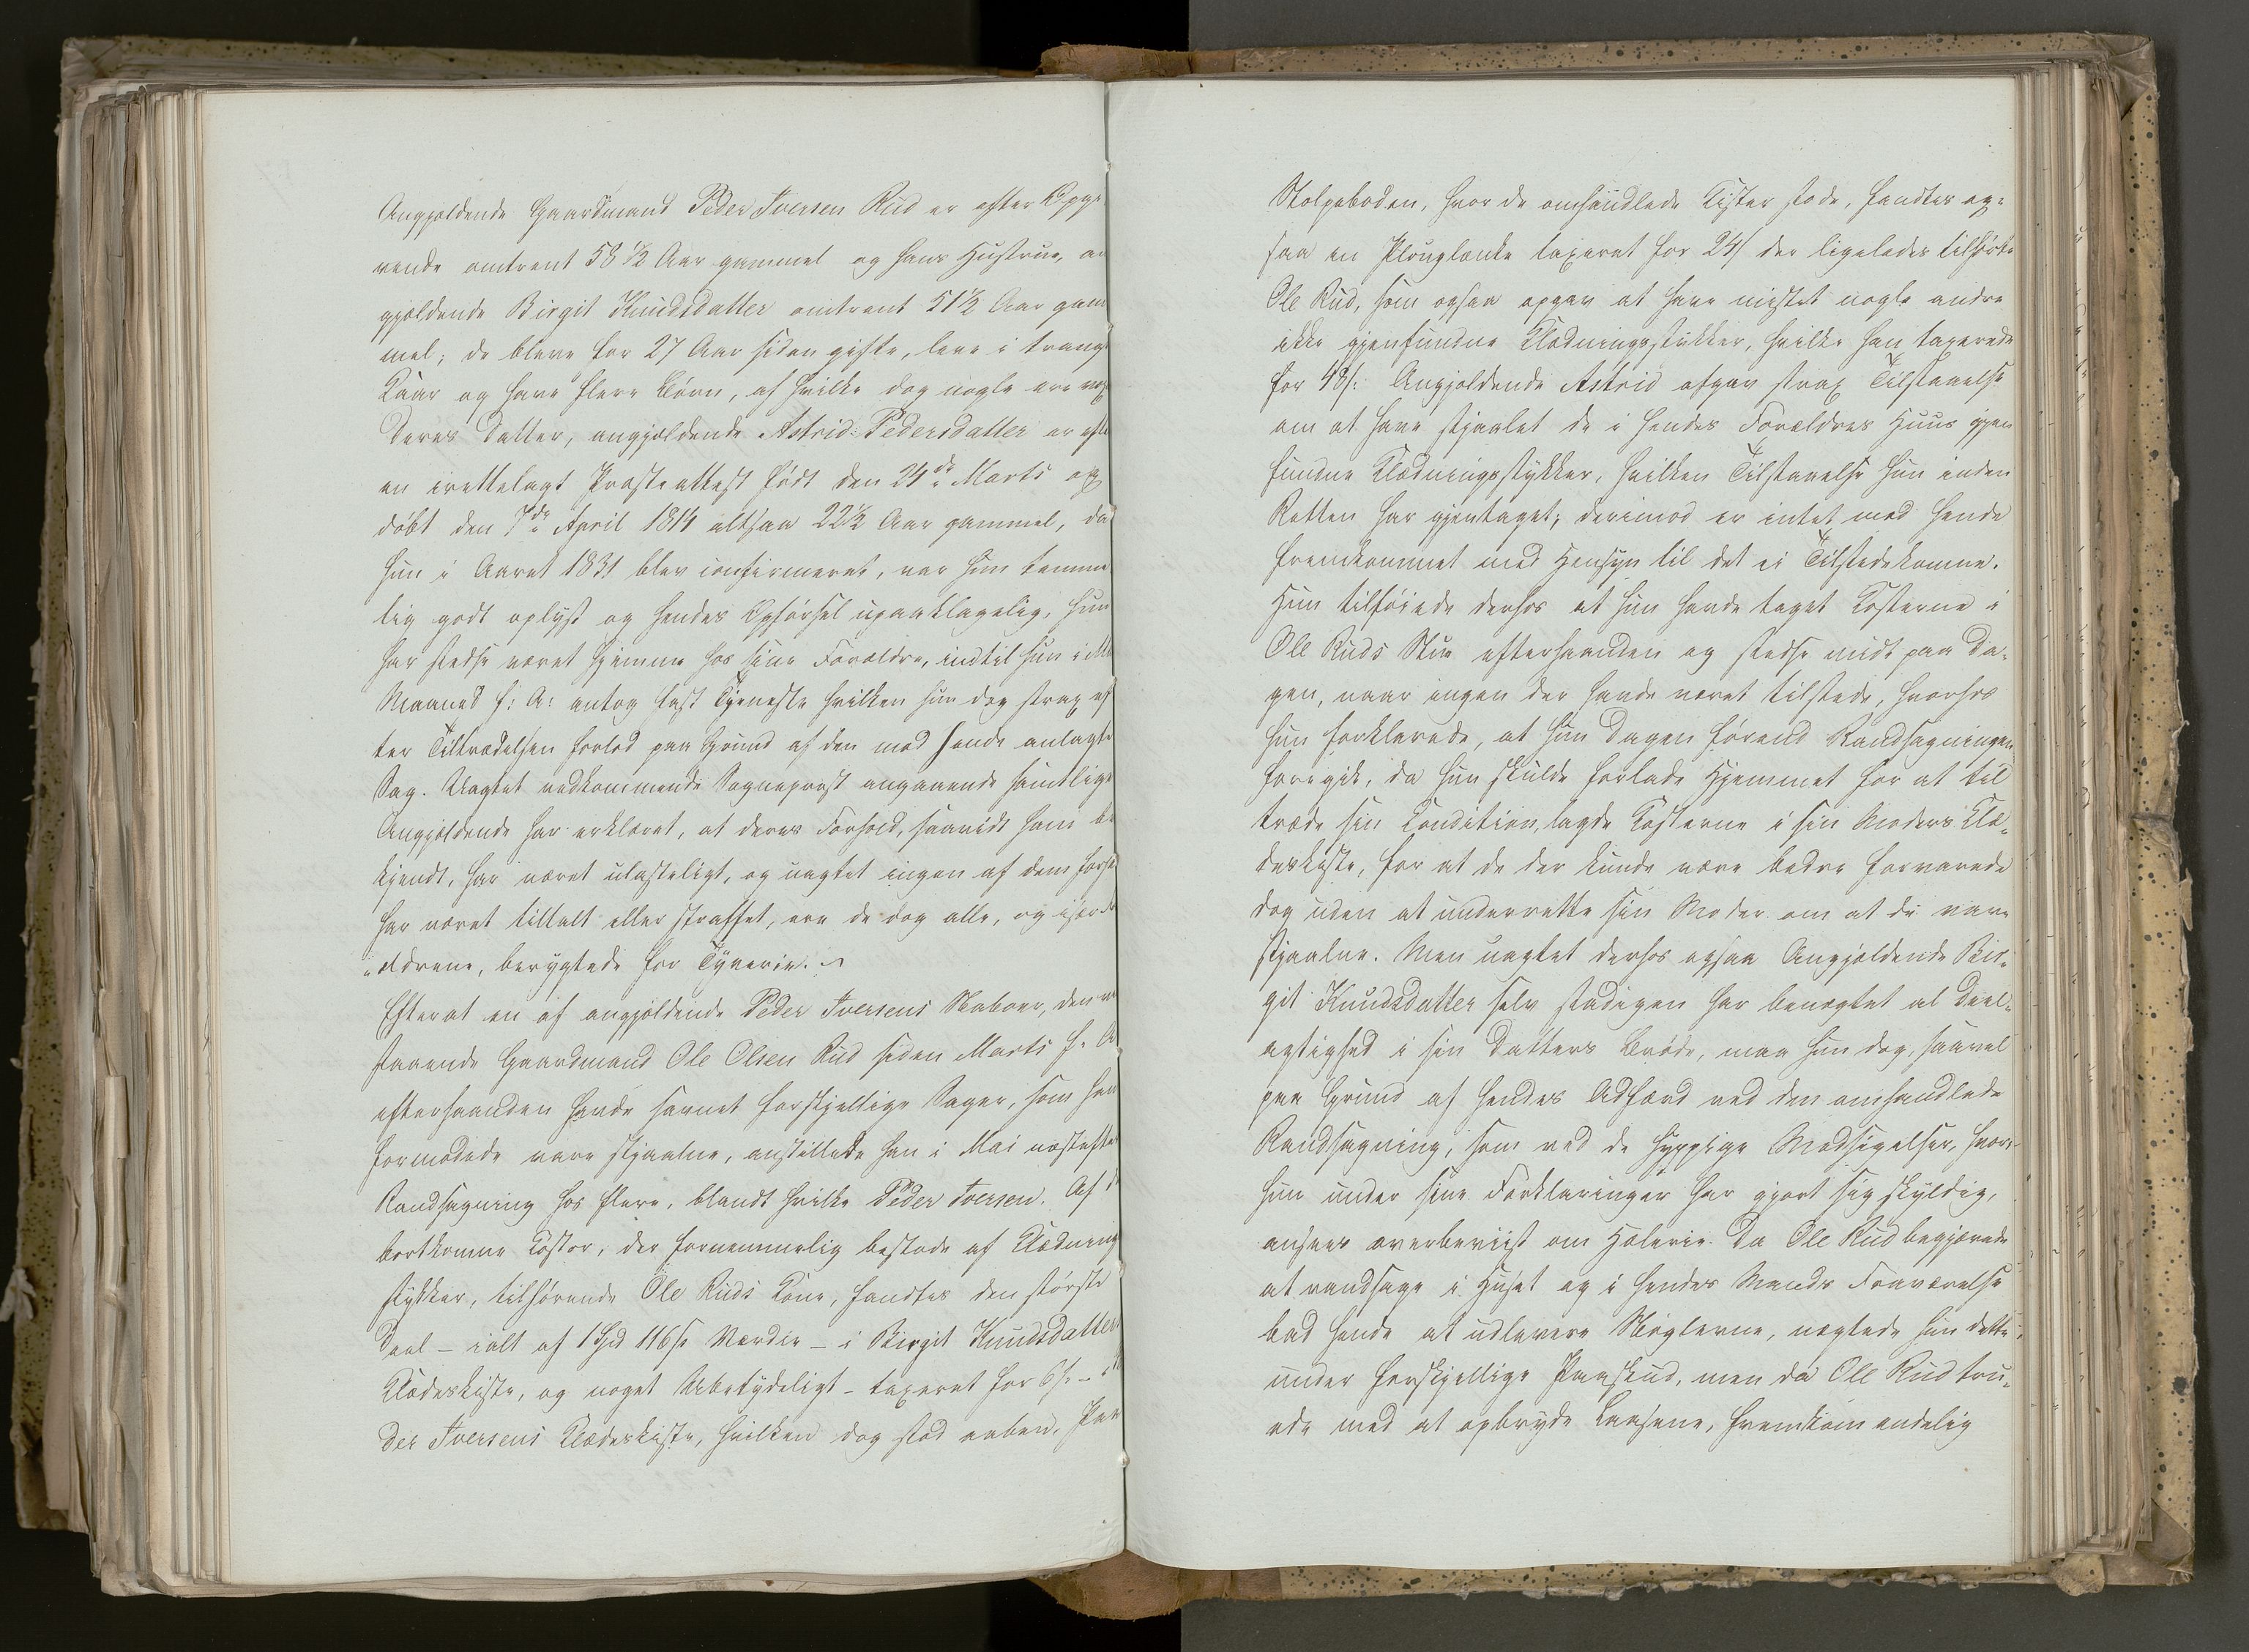 Angjældende Gaardmand Peder Iversen Rud er efter Opgi
vende omtrent 58 1/2 Aar gammel og hans Hustrue, an
gjældende Birgit Knudsdatter omtrent 51 1/2 Aar gam
mel; de bleve for 27 Aar siden gifte, leve i trange
Kaar og have flere Børn, af hvilke dog nogle ere vox
Deres Datter, angjældende Astrid Pedersdatter er efte
en irettelagt Præsteattest født den 24de Marts og
døbt den 7de April 1814 altsaa 22 1/2 Aar gammel, da
hun i Aaret 1831 blev confirmeret, var hun temme
lig godt oplyst og hendes Opførsel upaaklagelig, hun
har stedse været hjemme hos sine Forældre, indtil hun i Mai
Maaned f: A: antog fast Tjeneste hvilken hun dog strax ef
ter Tiltrædelsen forlod paa Grund af den mod hende anlagte
Sag. Uagtet vedkommende Sognepræst angaaende samtlige
Angjældende har erklæret, at deres Forhold, saavidt ham be
kjendt, har været ulasteligt, og uagtet ingen af dem før
har været tiltalt eller straffet, ere de dog alle, og især
ældrene, berygtede for Tyverie.
Efterat en af angjældende Peder Iversens Naboer, den
staaende Gaardmand Ole Olsen Rud siden Marts f. A
efterhaanden havde savnet forskjellige Sager, som han
formodede vare stjaalne, anstillede han i Mai næstefter
Randsagning hos flere, blandt hvilke Peder Iversen. Af de
bortkomne Koster, der fornemmelig bestode af Klædning
stykker, tilhørende Ole Ruds Kone, fandtes den største
Deel - ialt af 1 Spd 116 s. Værdie - i Birgit Knudsdatters
Klædeskiste, og noget Ubetydeligt - taxeret for 6 s. - i
der Iversens Klædeskiste, hvilken dog stod aaben. Paa
Stolpeboden, hvor de omhandlede Kister stode, fandtes og-
saa en Plouglænke taxeret for 24 s der ligeledes tilhørte
Ole Rud, som ogsaa opgav at have mistet nogle andre
ikke gjenfundne Klædningsstykker, hvilke han taxerede
for 48 s: Angjældende Astrid afgav strax Tilstaaelse
om at have stjaalet de i hendes Forældres Huus gjen
fundne Klædningsstykker, hvilken Tilstaaelse hun inden
Retten har gjentaget; derimod er intet mod hende
fremkommet med Hensyn til det ei Tilstedekomne.
Hun tilføiede derhos at hun havde taget Kosterne i
Ole Ruds Stue efterhaanden og stedse midt paa Da-
gen, naar ingen der havde været tilstede, hvorhos
hun forklarede, at hun Dagen førend Randsagningen
foregik, da hun skulde forlade Hjemmet for at til
træde sin Condition, lagde Kosterne i sin Moders Klæ-
deskiste, for at de der kunde være bedre forvarede
dog uden at underrette sin Moder om at de vare
stjaalne. Men uagtet derhos ogsaa Angjældende Bir-
git Knudsdatter selv stadigen har benægtet al Deel-
agtighed i sin Datters Brøde, maa hun dog, saavel
paa Grund af hendes Adfærd ved den omhandlede
Randsagning, som ved de hyppige Modsigelser, hvori
hun under sine Forklaringer har gjort sig skyldig,
ansees overbeviist om Hælerie. Da Ole Rud begjærede
at randsage i Huset og i hendes Mands Fraværelse
bad hende at udlevere Nøglerne, nægtede hun dette
under forskjellige Paaskud, men da Ole Rud tru-
ede med at opbryde Laasene, fremkom endelig